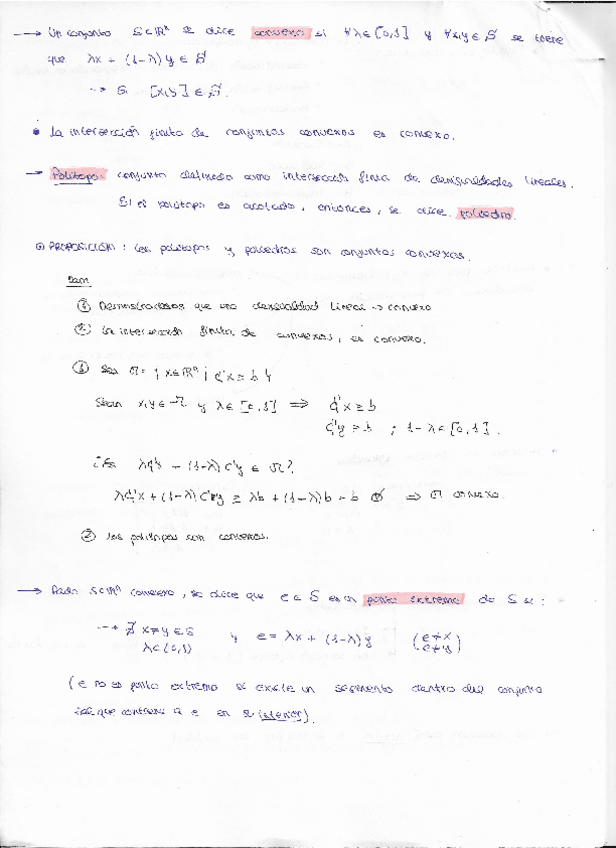 → Un conjunto S⊂ℝⁿ se dice convexo si ∀λ∈[0,1] y ∀x,y∈S se tiene
que λx + (1-λ)y ∈ S
→ Si [x,y] ∈ S.
• La intersección finita de conjuntos convexos es convexo.
→ Politopo: conjunto definido como intersección finita de desigualdades lineales.
Si el politopo es acotado, entonces, se dice poliedro.
⊙ PROPOSICIÓN: Los politopos y poliedros son conjuntos convexos.
Dem
① Demostraremos que una desigualdad lineal → convexo
② La intersección finita de convexos, es convexo.
① Sea Ω = {x∈ℝⁿ ¡ c'x ≥ b}
Sean x,y ∈ Ω y λ∈[0,1] ⟹ c'x ≥ b
c'y ≥ b ; 1-λ∈[0,1].
λc'x + (1-λ)c'y ≥ λb + (1-λ)b = b ⟹ Ω convexo.
② Los politopos son convexos.
→ Dado S⊂ℝⁿ convexo, se dice que e∈S es un punto extremo de S si:
→ ∄ x≠y∈S y e = λx + (1-λ)y (e≠x
λ∈(0,1) e≠y)
(e no es punto extremo si existe un segmento dentro del conjunto
tal que contiene a e en su interior).